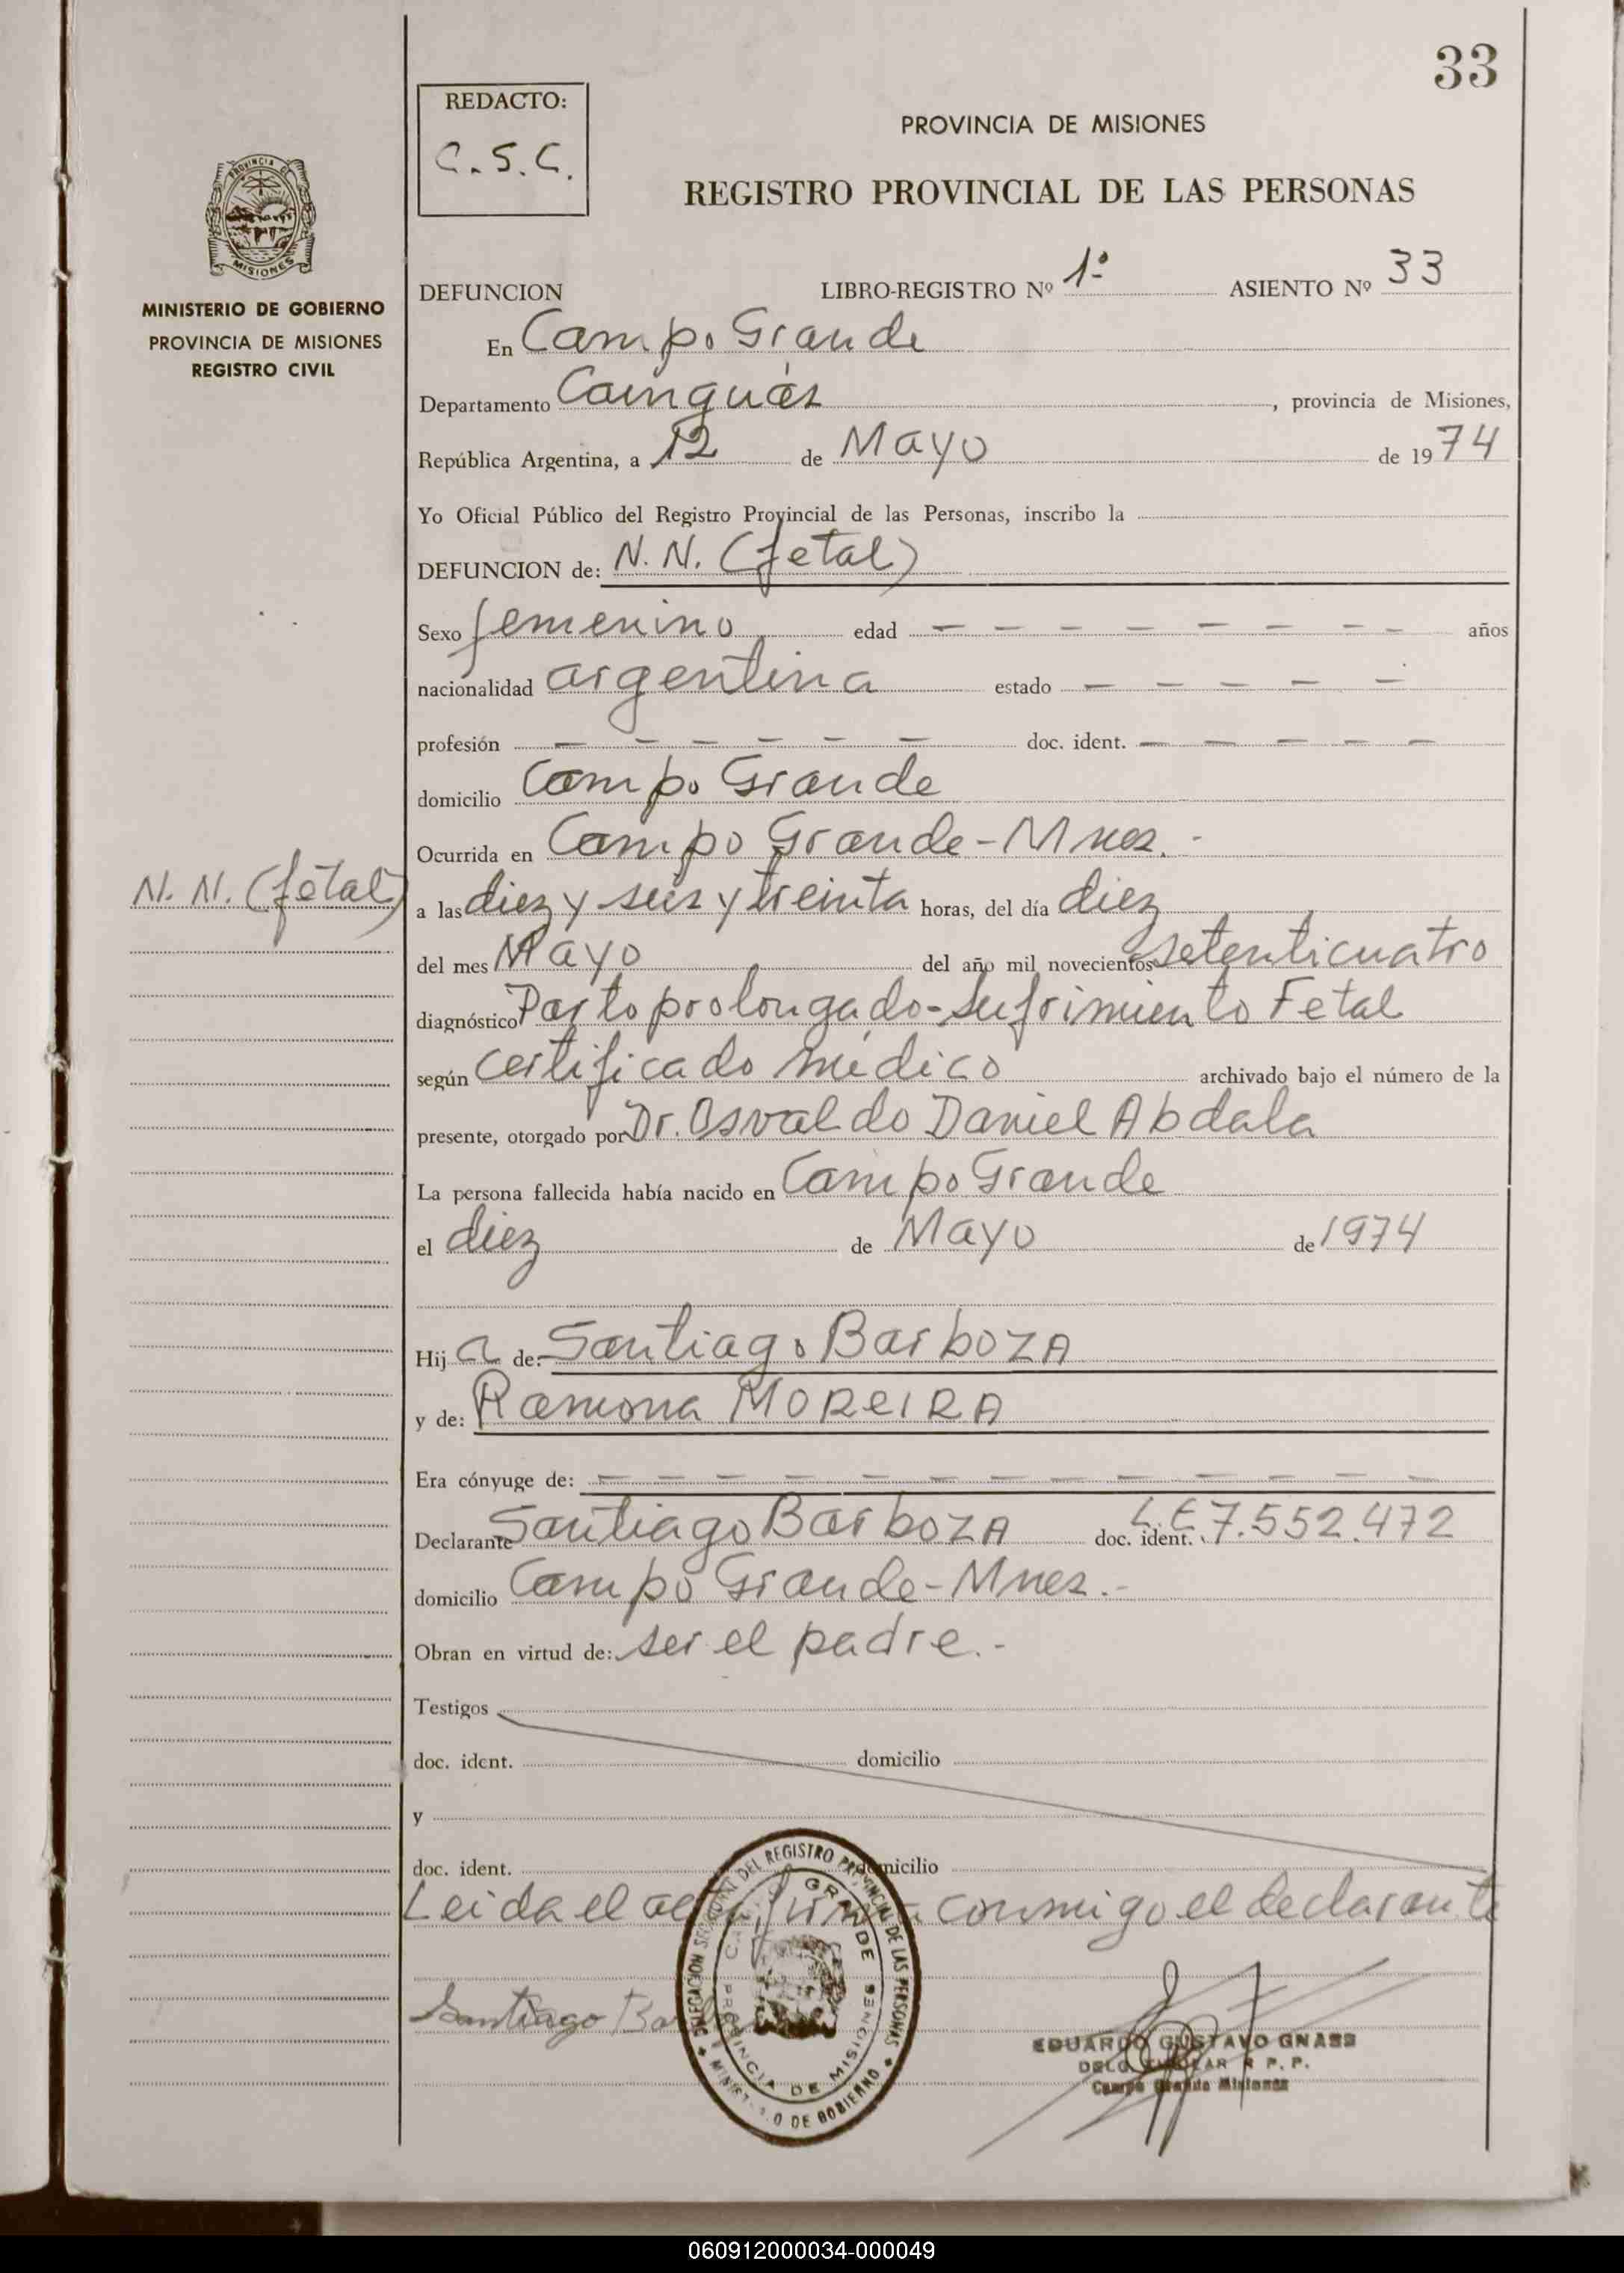 33
REDACTO:
C.S.C.
PROVINCIA DE MISIONES
REGISTRO PROVINCIAL DE LAS PERSONAS
PROVINCIA DE
MISIONES
MINISTERIO DE GOBIERNO
PROVINCIA DE MISIONES
REGISTRO CIVIL
DEFUNCION LIBRO-REGISTRO Nº 1º ASIENTO Nº 33
En Campo Grande
Departamento Cainguás, provincia de Misiones,
República Argentina, a 12 de Mayo de 1974
Yo Oficial Público del Registro Provincial de las Personas, inscribo la
DEFUNCION de: N. N. (fetal)
Sexo femenino edad — — — — — — — — años
nacionalidad argentina estado — — — — —
profesión — — — — — — doc. ident. — — — — —
domicilio Campo Grande
Ocurrida en Campo Grande - Mnes. -
N. N. (fetal)
a las diez y seis y treinta horas, del día diez
del mes Mayo del año mil novecientos setenticuatro
diagnóstico Parto prolongado - Sufrimiento Fetal
según certificado médico archivado bajo el número de la
presente, otorgado por Dr. Osvaldo Daniel Abdala
La persona fallecida había nacido en Campo Grande
el diez de Mayo de 1974
Hij a de: Santiago BarbozA
y de: Ramona MOReIRA
Era cónyuge de: — — — — — — — — — — — —
Declarante Santiago BarbozA doc. ident. L.E 7.552.472
domicilio Campo Grande - Mnes. -
Obran en virtud de: ser el padre. -
Testigos
doc. ident. domicilio
y
doc. ident. domicilio
Leida el firma conmigo el declarante
Santiago
DELEGACION DEL REGISTRO PROVINCIAL DE LAS PERSONAS
GRANDE
PROVINCIA DE MISIONES
DE GOBIERNO
EDUARDO GUSTAVO GNASS
R P. P.
Campo Grande Misiones
060912000034-000049